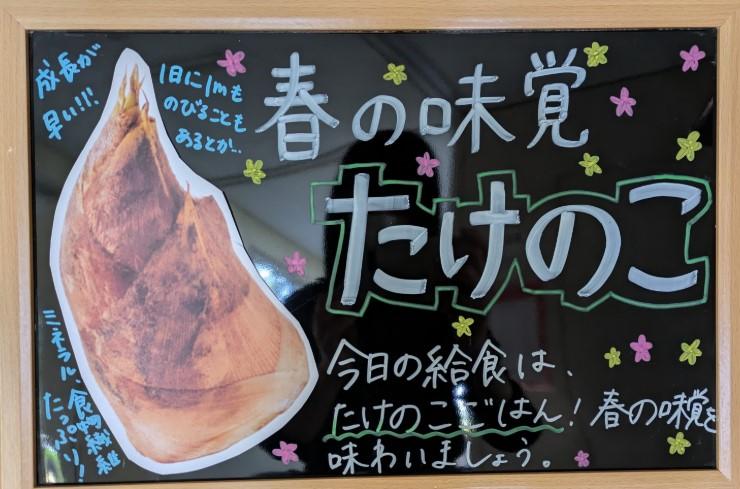 成長が
早い!!!
1日に1mも
のびることも
あるとか…
春の味覚
たけのこ
今日の給食は、
たけのこごはん！春の味覚を
味わいましょう。
ミネラル、
食物繊維
たっぷり！